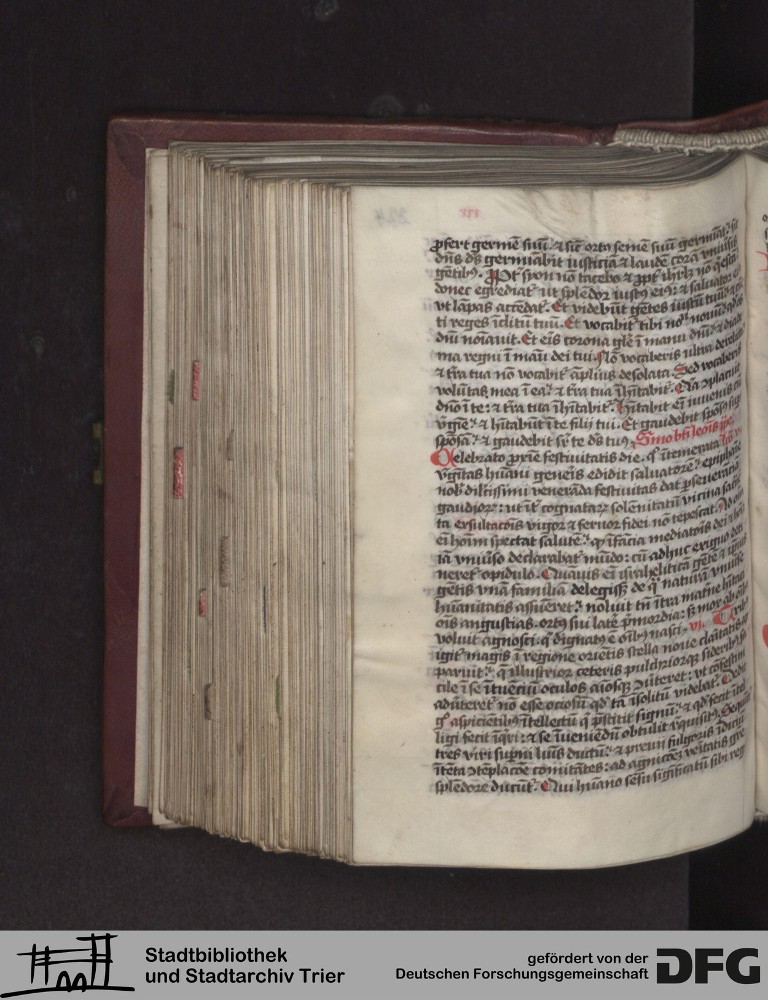 ꝓfert germē suū: ⁊ sic̄ ortꝯ semē suū germīat: sic
dn̄s dꝰ germīabit iusticiā ⁊ laudē corā vniūsis
gētibꝫ. Ppt̄ syon nō tacebo ⁊ ꝓpt̄ ihrlm̄ nō q̄escā:
donec egrediat᷑ ut splēdor iustꝯ eiꝯ: ⁊ saluator eiꝯ
vt lāpas accēdat᷑. Et videbūt gētes iustū tuū ⁊ cūc
ti reges īclitū tuū. Et vocabit᷑ tibi nomē nouū qd̓ os
dn̄i noīauit. Et eris corona glē ī manu dn̄i: ⁊ diade
ma regni ī māu dei tui. Nō vocaberis ultra derelicta
⁊ t̄ra tua nō vocabit᷑ āplius desolata. Sed vocaberis
volūtas mea ī ea: ⁊ t̄ra tua īhītabit᷑. Q̇a ꝯplacuit
dn̄o ī te: ⁊ t̄ra tua īhītabit᷑. Hītabit eī iuuenis cū
v̄gīe: ⁊ hītabūt ī te filij tui. Et gaudebit spōsꝯ sup
spōsā: ⁊ gaudebit sꝑ te dꝰ tuꝯ. Smo bt̄i leōis pp̄e.
Celebrato ꝓxīe festiuitatis die. q̄ ītemerata
v̄gītas hūani gen̄eis edidit saluatorē: epiphanie
nob̄ dilc̄issimi venerāda festiuitas dat ꝑseueracionē
gaudiorꝝ: ut īt̄ cognatarꝝ solēnitatū vicina sac̄a
ta exsultac̄ois vigor ⁊ feruor fidei nō tepescat. Ad oīm
eī hoīm spectat salutē: ꝙ īfācia mediatoris dei ⁊ hoīm
iā vniūso declarabat᷑ mūdo: cū adhuc exiguo deti
neret᷑ opidulo. Quāuis eī israheliticā gētē ⁊ ipsiꝯ
gētis vnā familiā delegiss; de q̄ naturā vniūse
hūanitatis assūeret: noluit tn̄ īt̄ra mat̄ne hītacōis
angustias
voluit agnosci. q̇ dignatꝯ ē oībꝫ nasci. vi. Tribꝫ
igit᷑ magis ī regione oriētis stella noue claritatis ap
paruit: q̄ illustrior ceteris pulchriorqꝫ sideribꝫ fa
cile ī se ītuenciū oculos aīosqꝫ ꝯūteret: vt cōfestim
adūteret᷑ nō esse ociosū qd̓ tā īsolitū videbat᷑. Dedit
gͦ aspiciētibꝫ ītellectū q̇ p̄stitit signū: ⁊ qd̓ fecit ītel
ligi fecit īq̇ri: ⁊ se īueniēdū obtulit req̇situs. Sequūt᷑
tres viri suꝑni luīs ductū: ⁊ p̄euij fulgoris īdiciū
ītēta ꝯtēplac̄oe comitātes: ad agnic̄oeꝫ veritatis gr̄e
splēdore ducūt᷑. Qui hūano sēsu significatū sibi reg
Stadtbibliothek
und Stadtarchiv Trier
gefördert von der
Deutschen Forschungsgemeinschaft
DFG